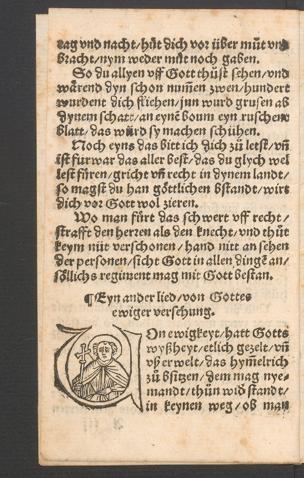 tag vnd nacht/hüt dich vor über müt vnd
bracht/nym weder müt noch gaben.
So du allyen vff Gott thüst sehen/vnd
wärend dyn schon nummen zwen/hundert
wurdent dich fliehen/jnn wurd grusen ab
dynem schatt/an eynem boum eyn ruschend
blatt/das würd sy machen schühen.
Noch eyns das bitt ich dich zů letst/vñ
ist furwar das aller best/das du glych wel
lest füren/gricht vñ recht in dynem landt/
so magst du han göttlichen bstandt/wirt
dich vor Gott wol zieren.
Wo man fürt das schwert vff recht/
strafft den herren als den knecht/vnd thůt
keym nüt verschonen/hand nitt an sehen
der personen/sicht Gott in allen dingē an/
söllichs regiment mag mit Gott bestan.
¶Eyn ander lied/von Gottes
ewiger versehung.
VOn ewigkeyt/hatt Gotts
wyßheyt/etlich gezelt/vñ
vß erwelt/das hymelrich
zů bsitzen/dem mag nye-
mandt/thůn widstandt/
in keynen weg/ob man